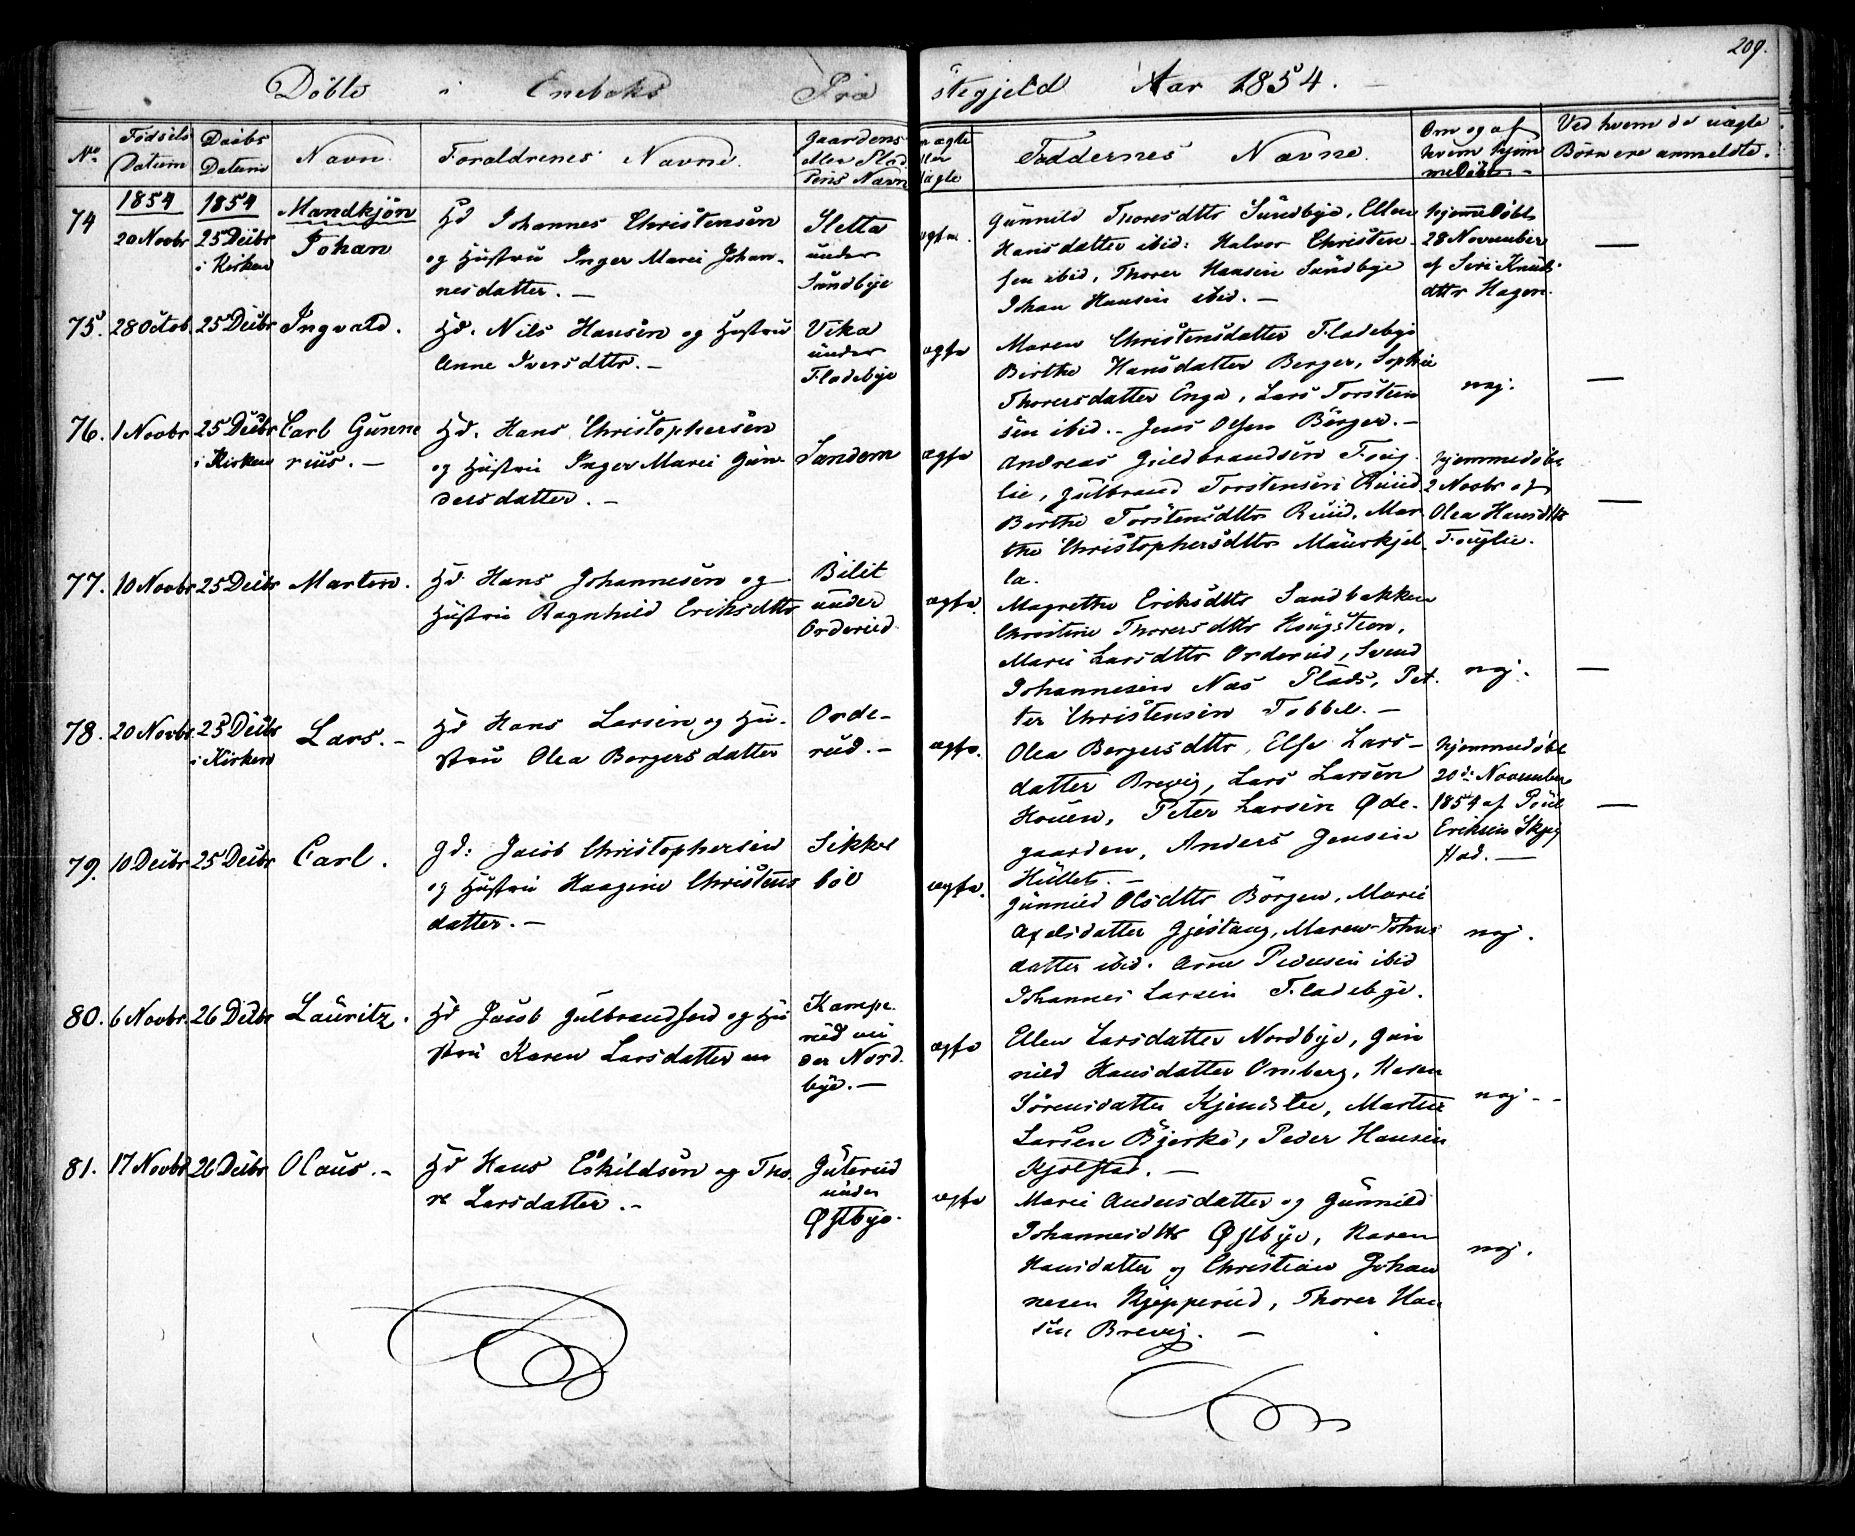 209.
Døbte i Enebaks Præstegjeld Aar 1854.
No.
Fødsels Datum
Daabs Datum
Navn
Foraldrenes Navne.
Gaardens eller Pladsens Navn
Faddernes Navne.
Om og af hvem hjemmedøbt.
Ved hvem de uægte Børn ere anmeldte.
1854 1854 Mandkjøn
74 20 Novbr 25 Decbr i Kirken Johan
Hd Johannes Christensen
og Hustru Inger Marie Johan-
nesdatter.
Sletta
under
Sundbye
ægte.
Gunnild Thoresdttr Sundbye, Ellen
Hansdatter ibid: Halvor Christen-
sen ibid, Thorer Hansen Sundbye
Johan Hansen ibid.
hjemmedøbt
28 November
af Siri Knuds-
dttr Hagen.
75. 28 Octob. 25 Decbr Ingvald.
Hd. Nils Hansen og Hustru
Anne Iversdttr.
Vika
under
Fladebye
ægte
Maren Christensdatter Fladebye
Birthe Hansdatter Berger, Sophie
Thorersdatter Enga, Lars Torsten
sen ibid. Jens Olsen Börger.
nej.
76. 1 Novbr 25 Decbr i Kirken Carl Gunne
rius.
Hd. Hans Christophersen
og Hustru Inger Marie Gun
dersdatter.
Sandem
ægte
Andreas Guldbrandsen Fug-
lie, Gulbrand Torstensen Ruud
Berthe Torstensdttr Ruud, Mar-
the Christophersdttr Maurkjel-
la.
hjemmedøbt
2 Novbr af
Olea Hansdttr
Fuglie.
77. 10 Novbr 25 Decbr Marten.
Hd. Hans Johannesen og
Hustru Ragnhild Eriksdttr
Bilit
under
Orderud
ægte.
Magrethe Eriksdttr Sandbakken
Christine Thorersdttr Haugsteen,
Marie Larsdttr Orderud, Svend
Johannesen Næs Plads, Pet-
ter Christensen Tobbel.
nej.
78. 20 Novbr 25 Decbr i Kirken Lars.
Hd Hans Larsen og Hu-
stru Olea Borgersdatter
Orde-
rud.
ægte.
Olea Borgersdttr, Else Lars-
datter Brevig, Lars Larsen
Houen, Peter Larsen Øde-
gaarden, Anders Jensen
Hullet.
hjemmedøbt
20de November
1854 af Poul
Eriksen
79. 10 Decbr 25 Decbr Carl.
Gd: Jacob Christophersen
og Hustru Haagine Christens
datter.
Sikke
böl
ægte.
Gunnild Olsdttr Börgen, Marie
Axelsdatter Gjestang, Maren Johns
datter ibid. Arne Pedersen ibid
Johannes Larsen Fladebye.
nej.
80. 6 Novbr. 26 Decbr Lauritz.
Hd Jacob Gulbrandsen og Hu
stru Karen Larsdatter
Kampe-
rud un
der Nord-
bye.
ægte
Ellen Larsdatter Nordbye, Gun
nild Hansdatter Omberg, Karen
Sørensdatter Kjendslie, Martin
Larsen Bjerke, Peder Hansen
Kjølstad.
nej.
81. 17 Novbr 26 Decbr Olaus.
Hd Hans Eskildsen og Tho-
re Larsdatter.
Guterud
under
Østbye.
ægte
Marie Andersdatter og Gunnild
Johannesdttr Østbye, Karen
Hansdatter og Christian Johan
nesen Kjepperud, Thorer Han
sen Brevig.
nej.